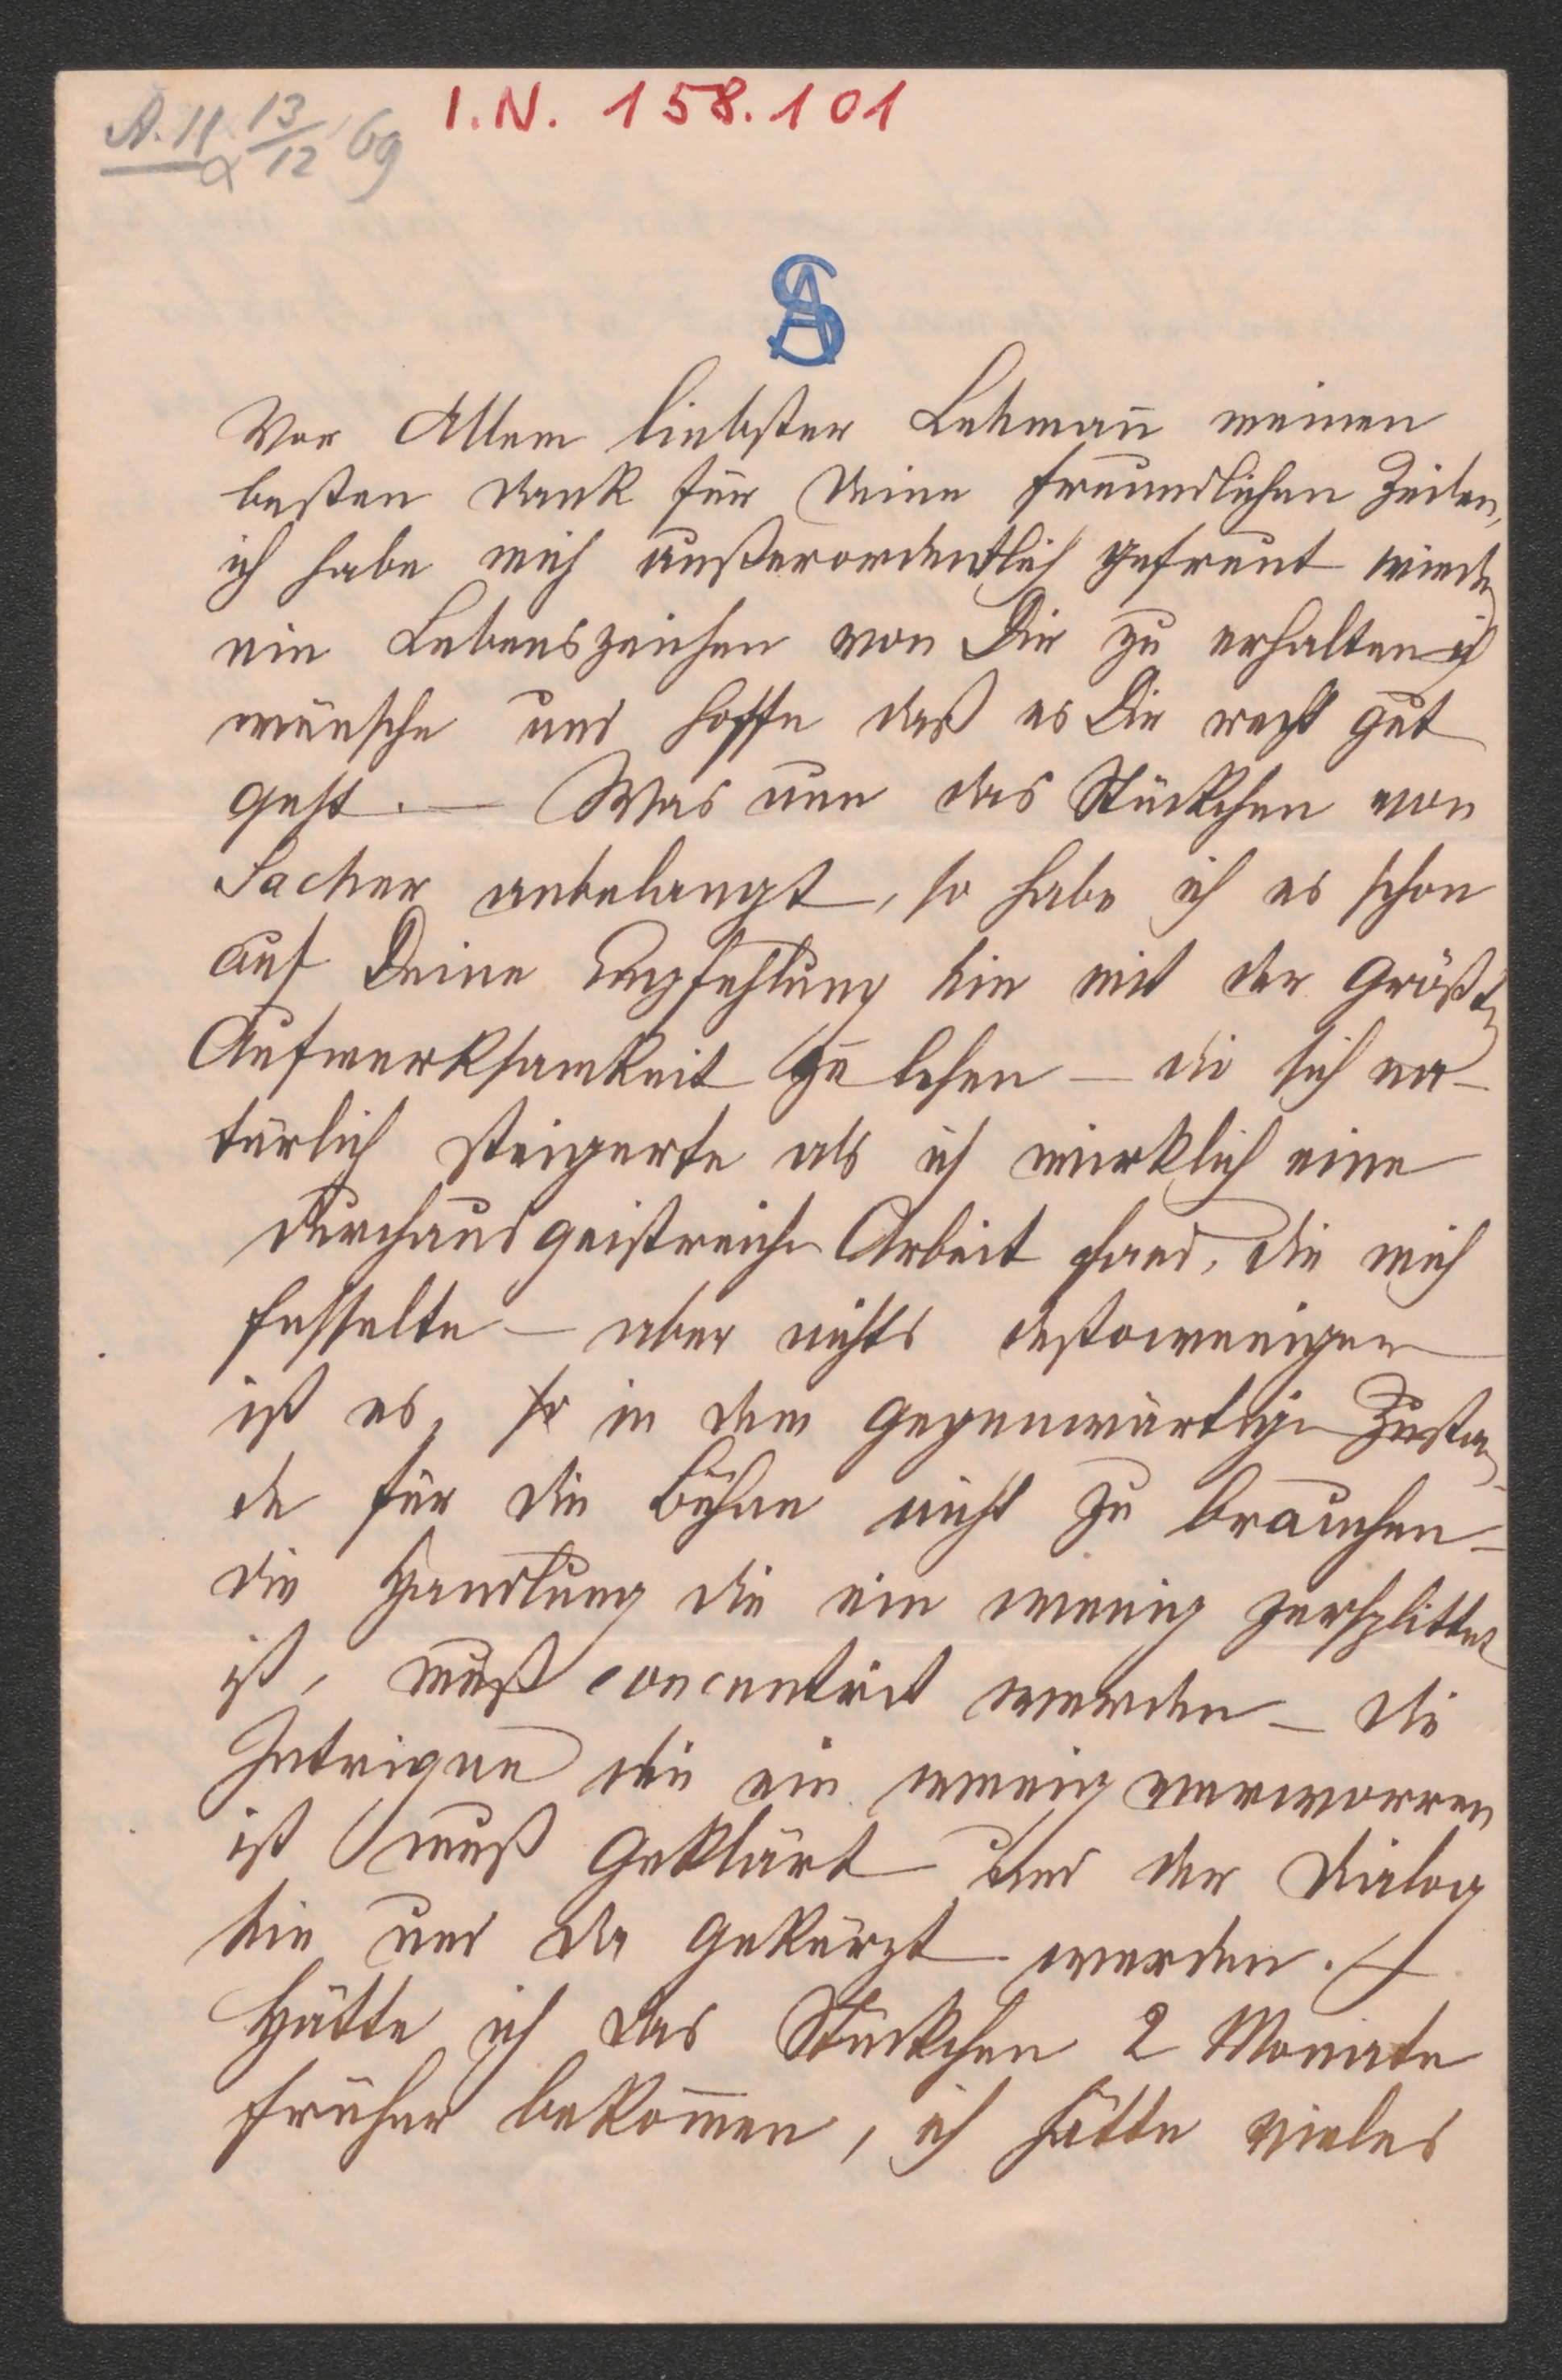 A. 11 13/12 69
I.N. 158.101
SA
Vor Allem liebster Lehmañ meinen
besten Dank für Deine freundlichen Zeilen,
ich habe mich außerordentlich gefreut wieder
ein Lebenszeichen von Dir zu erhalten ich
wünsche und hoffe daß es Dir recht gut
geht. — Was nun das Stückchen von
Sacher anbelangt, so habe ich es schon
auf Deine Empfehlung hin mit der größten
Aufmerksamkeit gelesen — die sich na-
türlich steigerte als ich wirklich eine
durchaus geistreiche Arbeit fand, die mich
fesselte — aber nichts destoweniger
ist es, so in dem gegenwärtigen Zustan-
de für die Bühne nicht zu brauchen —
die Handlung die ein wenig zersplittert
ist, muß concentrirt werden — die
Intrigue die ein wenig verworren
ist muß geklärt und der Dialog
hie und da gekürzt werden. —
Hätte ich das Stückchen 2 Monate
früher bekom̄en, ich hätte vieles